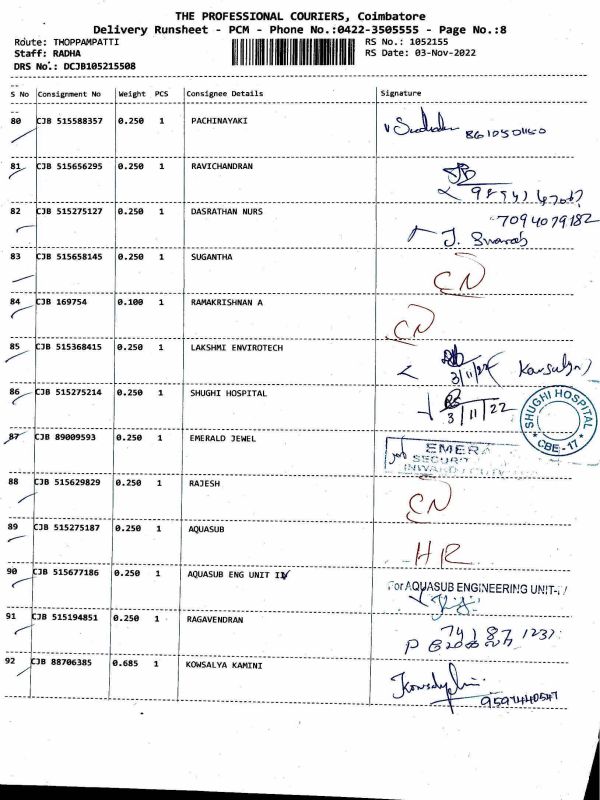 THE PROFESSIONAL COURIERS, Coimbatore
Delivery Runsheet - PCM - Phone No.:0422-3505555 - Page No.:8
Route: THOPPAMPATTI RS No.: 1052155
Staff: RADHA RS Date: 03-Nov-2022
DRS No.: DCJB105215508
S No Consignment No Weight PCS Consignee Details Signature
80 CJB 515588357 0.250 1 PACHINAYAKI
81 CJB 515656295 0.250 1 RAVICHANDRAN
82 CJB 515275127 0.250 1 DASRATHAN NURS 7094079182
83 CJB 515658145 0.250 1 SUGANTHA CN
84 CJB 169754 0.100 1 RAMAKRISHNAN A CN
85 CJB 515368415 0.250 1 LAKSHMI ENVIROTECH 3/11/22
86 CJB 515275214 0.250 1 SHUGHI HOSPITAL 3/11/22 SHUGHI HOSPITAL * CBE-17 *
87 CJB 89009593 0.250 1 EMERALD JEWEL EMERA
88 CJB 515629829 0.250 1 RAJESH CN
89 CJB 515275187 0.250 1 AQUASUB HR
90 CJB 515677186 0.250 1 AQUASUB ENG UNIT For AQUASUB ENGINEERING UNIT-
91 CJB 515194851 0.250 1 RAGAVENDRAN
92 CJB 88706385 0.685 1 KOWSALYA KAMINI